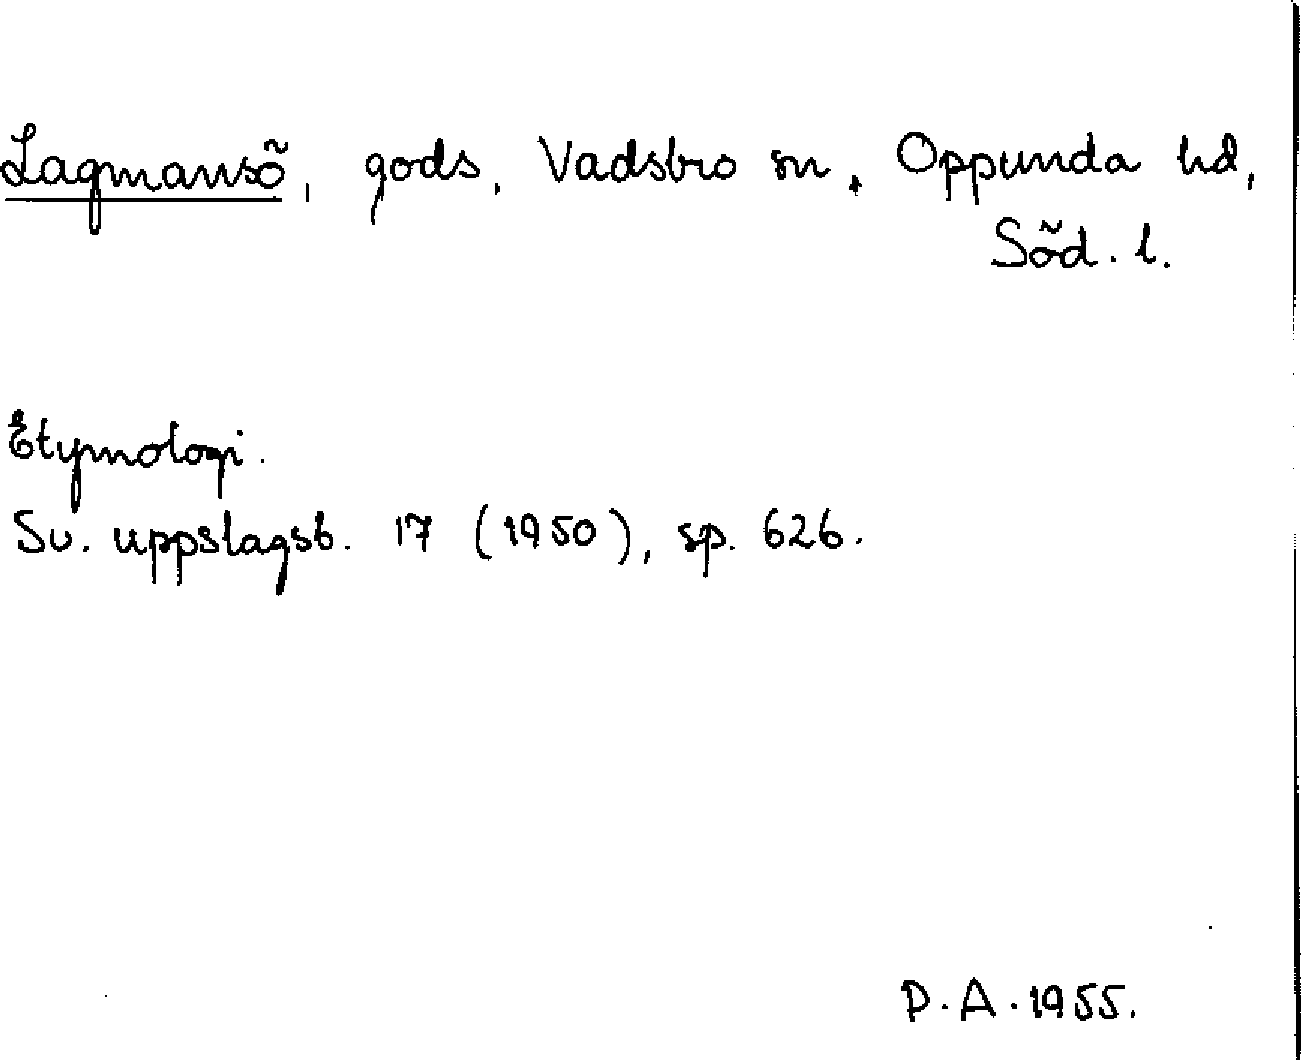 Lagmansö, gods, Vadsbro sn, Oppunda hd,
Söd. l.
Etymologi.
Sv. uppslagsb. 17 (1950), sp. 626.
D.A. 1955.